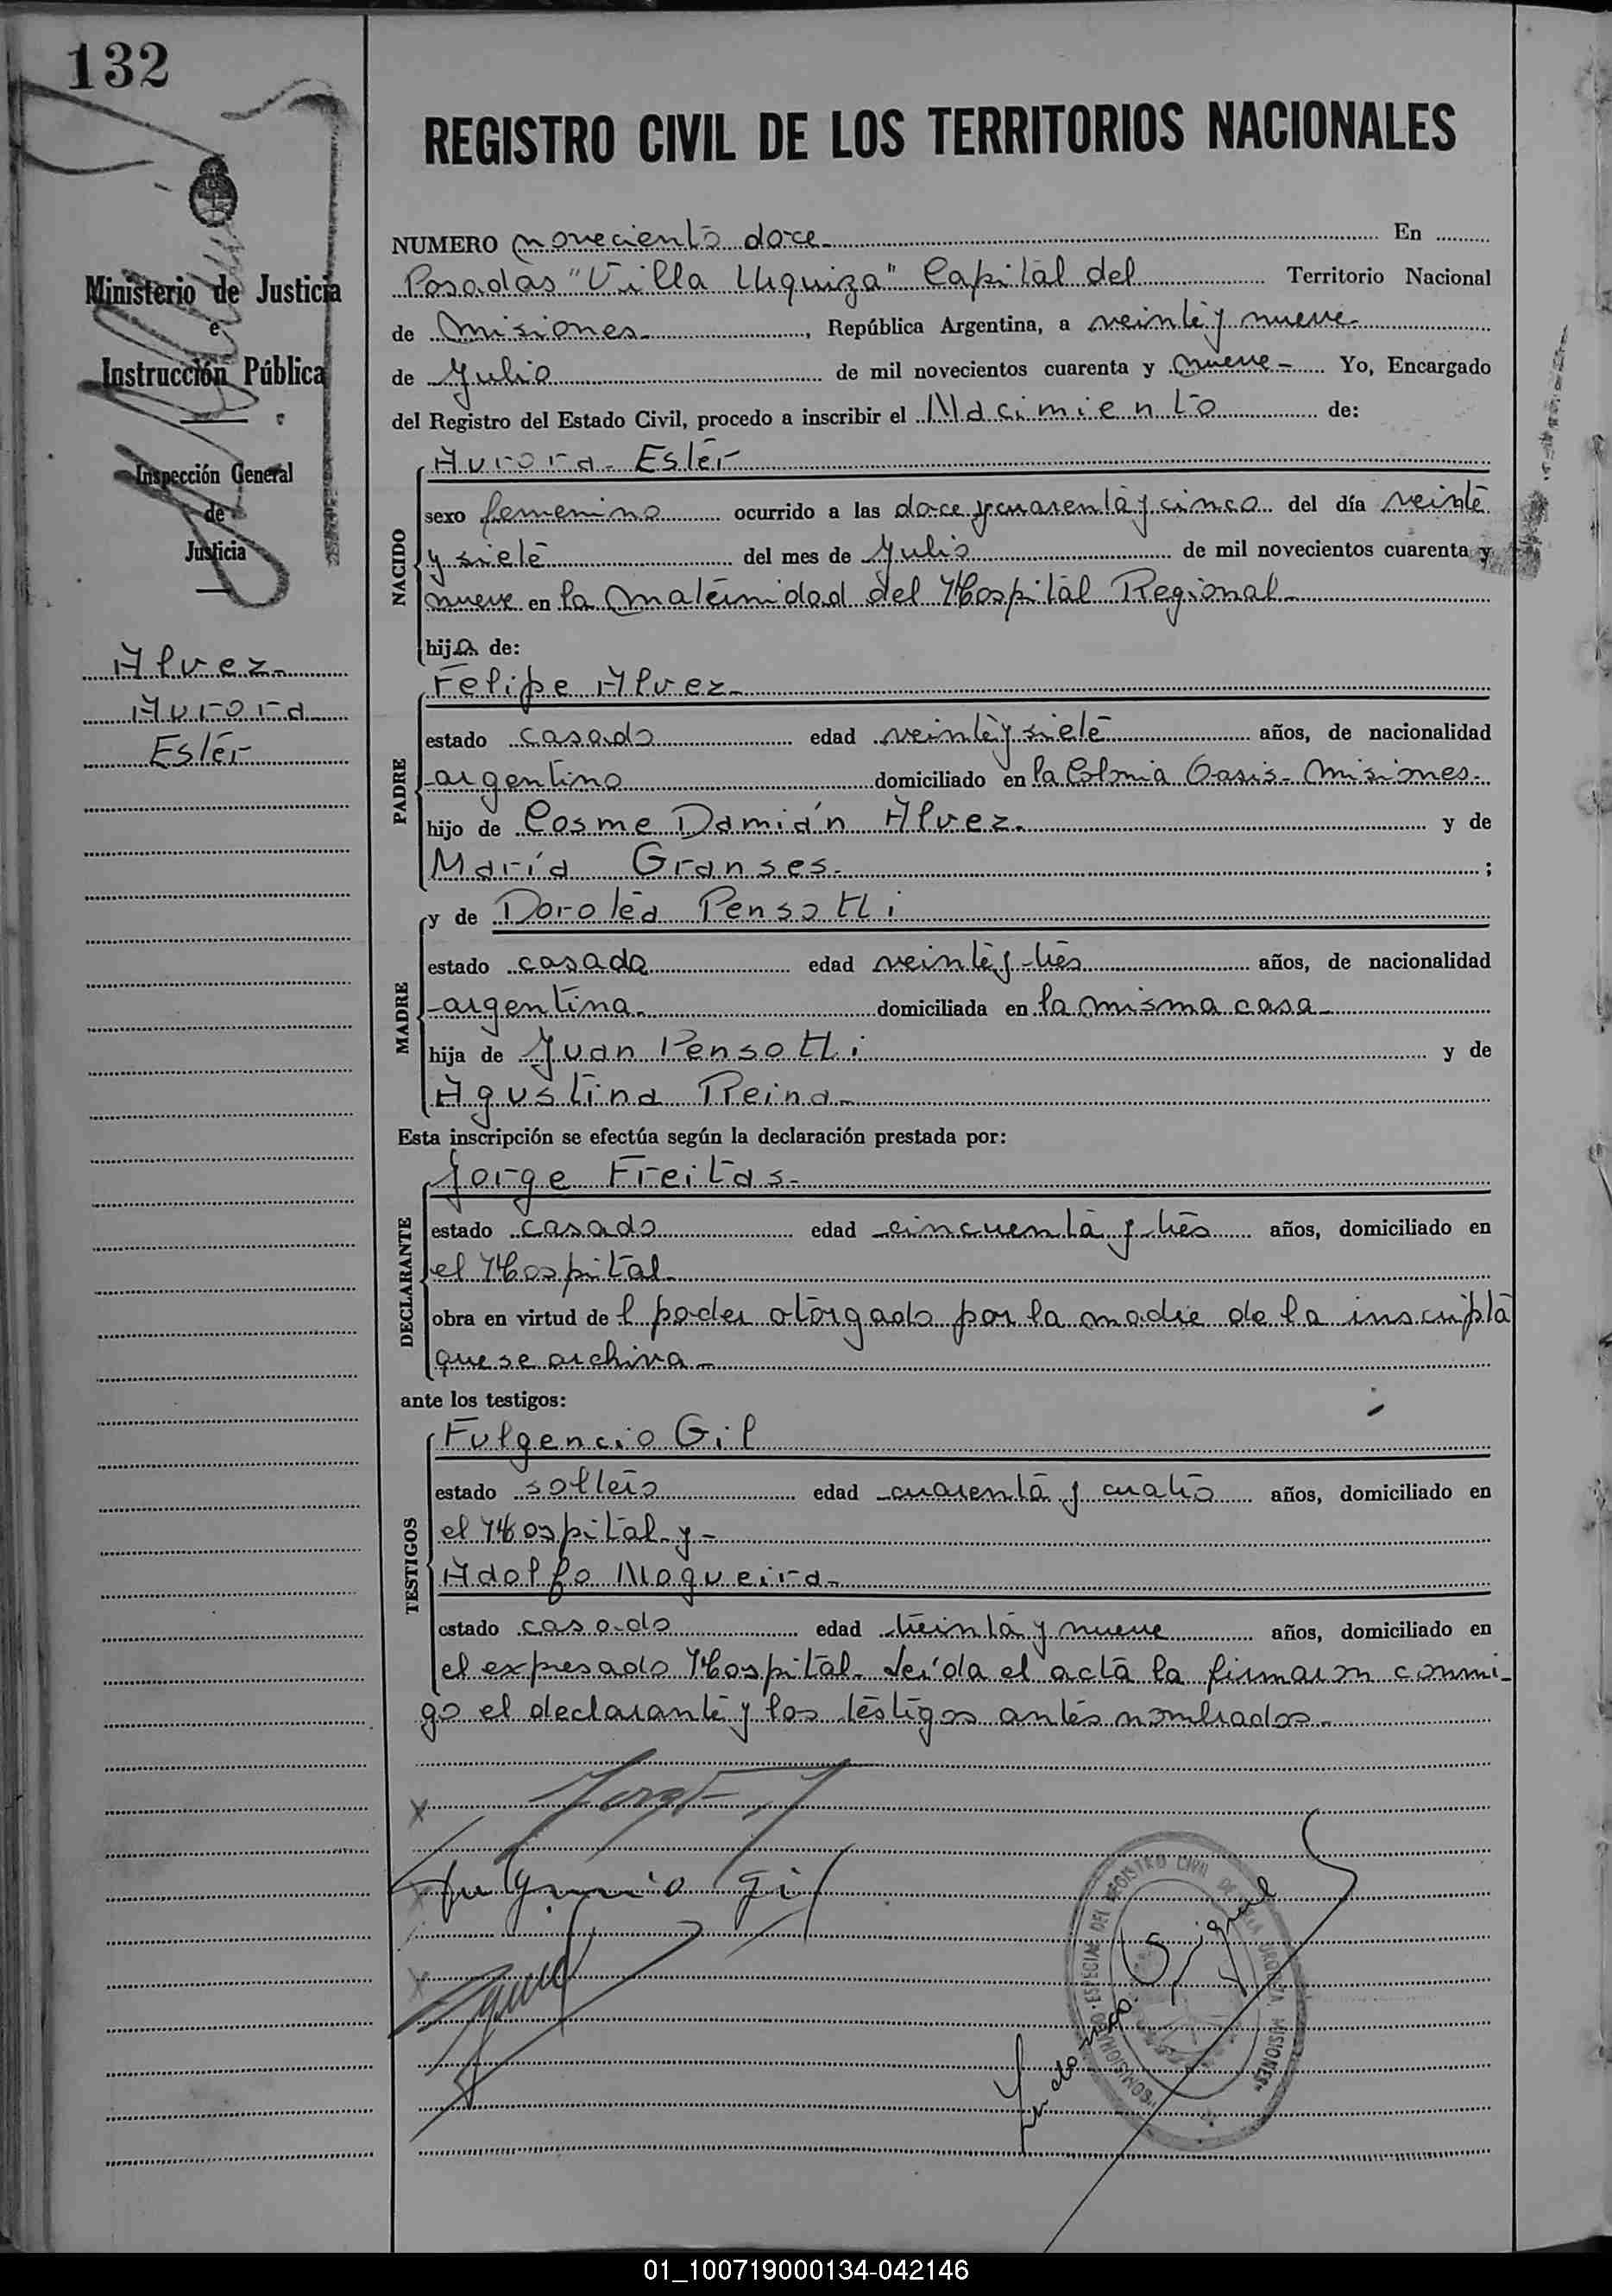 132
Ministerio de Justicia
e
Instrucción Pública
Inspección General
de
Justicia
Alvez
Aurora
Ester
REGISTRO CIVIL DE LOS TERRITORIOS NACIONALES
NUMERO novecientos doce En
Posadas "Villa Urquiza" Capital del Territorio Nacional
de Misiones, República Argentina, a veinte y nueve
de Julio de mil novecientos cuarenta y nueve - Yo, Encargado
del Registro del Estado Civil, procedo a inscribir el Nacimiento de:
NACIDO
Aurora Ester
sexo femenino ocurrido a las doce y cuarenta y cinco del día veinte
y siete del mes de Julio de mil novecientos cuarenta y
nueve en la Maternidad del Hospital Regional
hija de:
PADRE
Felipe Alvez
estado casado edad veinte y siete años, de nacionalidad
argentino domiciliado en la Colonia Oasis - Misiones.
hijo de Cosme Damián Alvez y de
María Granses ;
MADRE
y de Dorotea Pensotti
estado casada edad veinte y tres años, de nacionalidad
argentina domiciliada en la misma casa
hija de Juan Pensotti y de
Agustina Reina
Esta inscripción se efectúa según la declaración prestada por:
DECLARANTE
Jorge Freitas
estado casado edad cincuenta y tres años, domiciliado en
el Hospital
obra en virtud de l poder otorgado por la madre de la inscripta
que se archiva
ante los testigos:
TESTIGOS
Fulgencio Gil
estado soltero edad cuarenta y cuatro años, domiciliado en
el Hospital y
Adolfo Nogueira
estado casado edad treinta y nueve años, domiciliado en
el expresado Hospital. Leída el acta la firmaron conmi-
go el declarante y los testigos antes nombrados
Fulgencio Gil
REGISTRO CIVIL
MISIONES
01_100719000134-042146